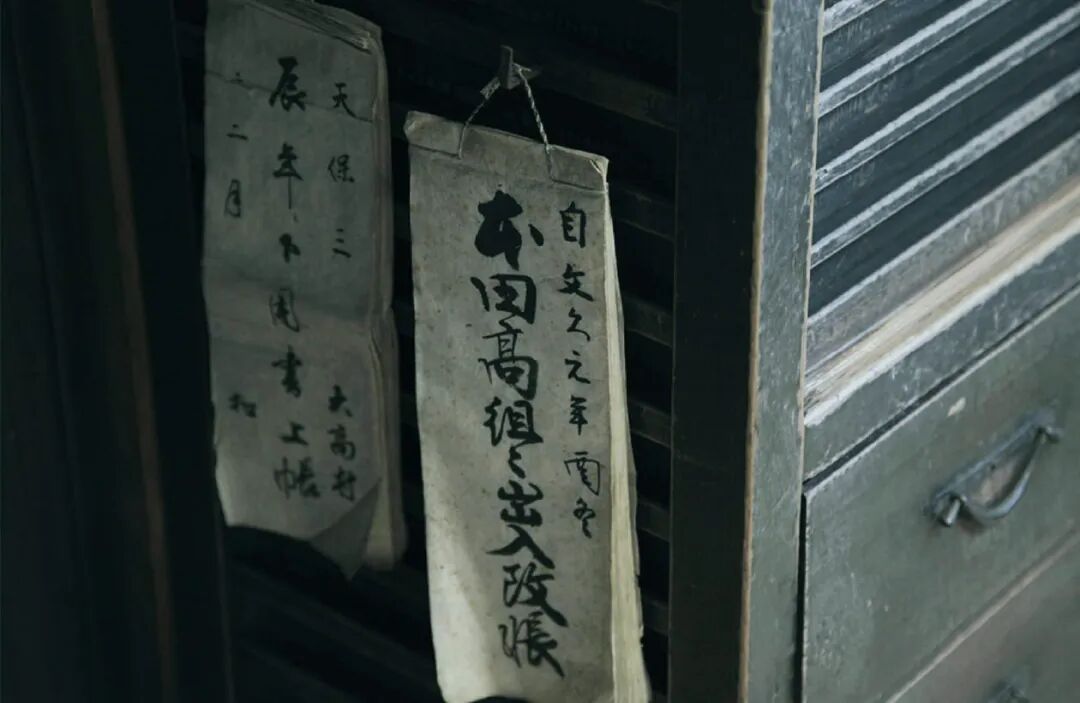 自文久元年酉冬
本田高組〻出入改帳
天保三
辰年下用書上帳
二月
大高村